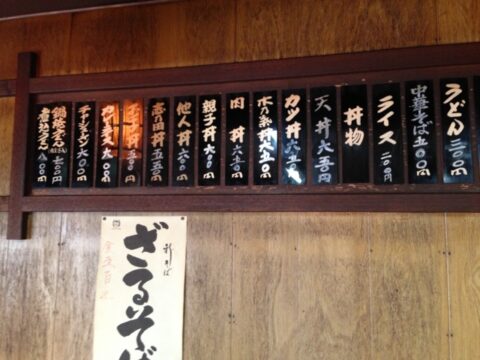 うどん 三〇〇円
中華そば 五〇〇円
ライス 二〇〇円
丼物
天丼 六五〇円
カツ丼 六五〇円
木の葉丼 六五〇円
肉丼 六五〇円
親子丼 六〇〇円
他人丼 六〇〇円
志の田丼 五五〇円
玉子丼 五〇〇円
カレーライス 六〇〇円
チャーシューメン 六〇〇円
鍋焼うどん
七〇〇円
八〇〇円
新そば
ざるそば